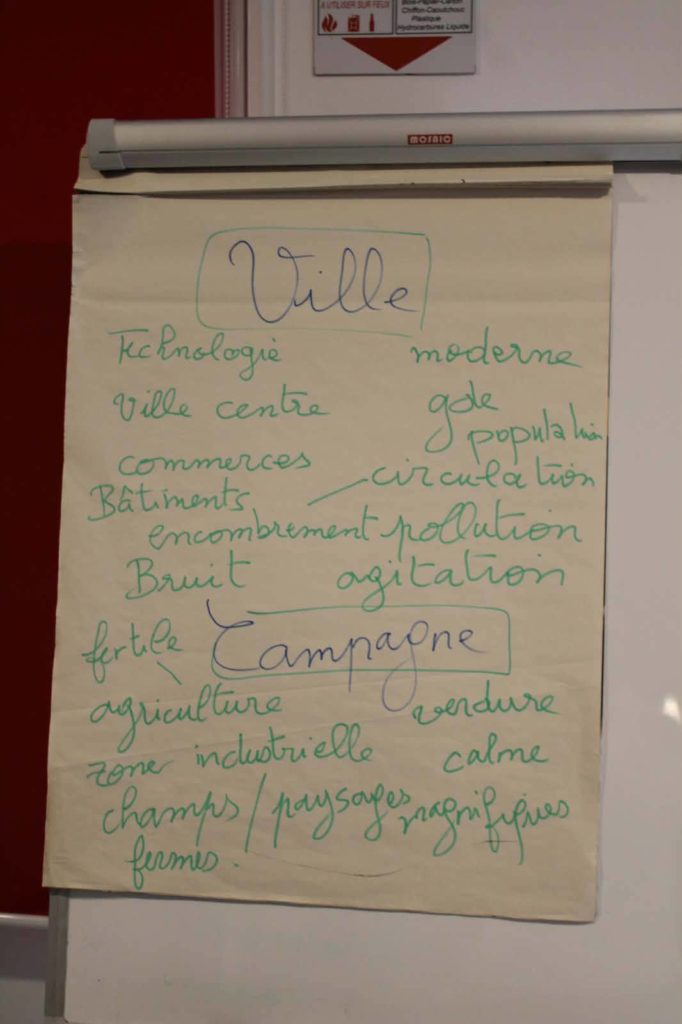 A UTILISER SUR FEUX
Bois-Papier-Carton
Chiffon-Caoutchouc
Plastique
Hydrocarbures Liquide
MOSAIC
Ville
Technologie moderne
Ville centre gde population
commerces circulation
Bâtiments
encombrement pollution
Bruit agitation
fertile Campagne
agriculture verdure
zone industrielle calme
champs / paysages magnifiques
fermes.